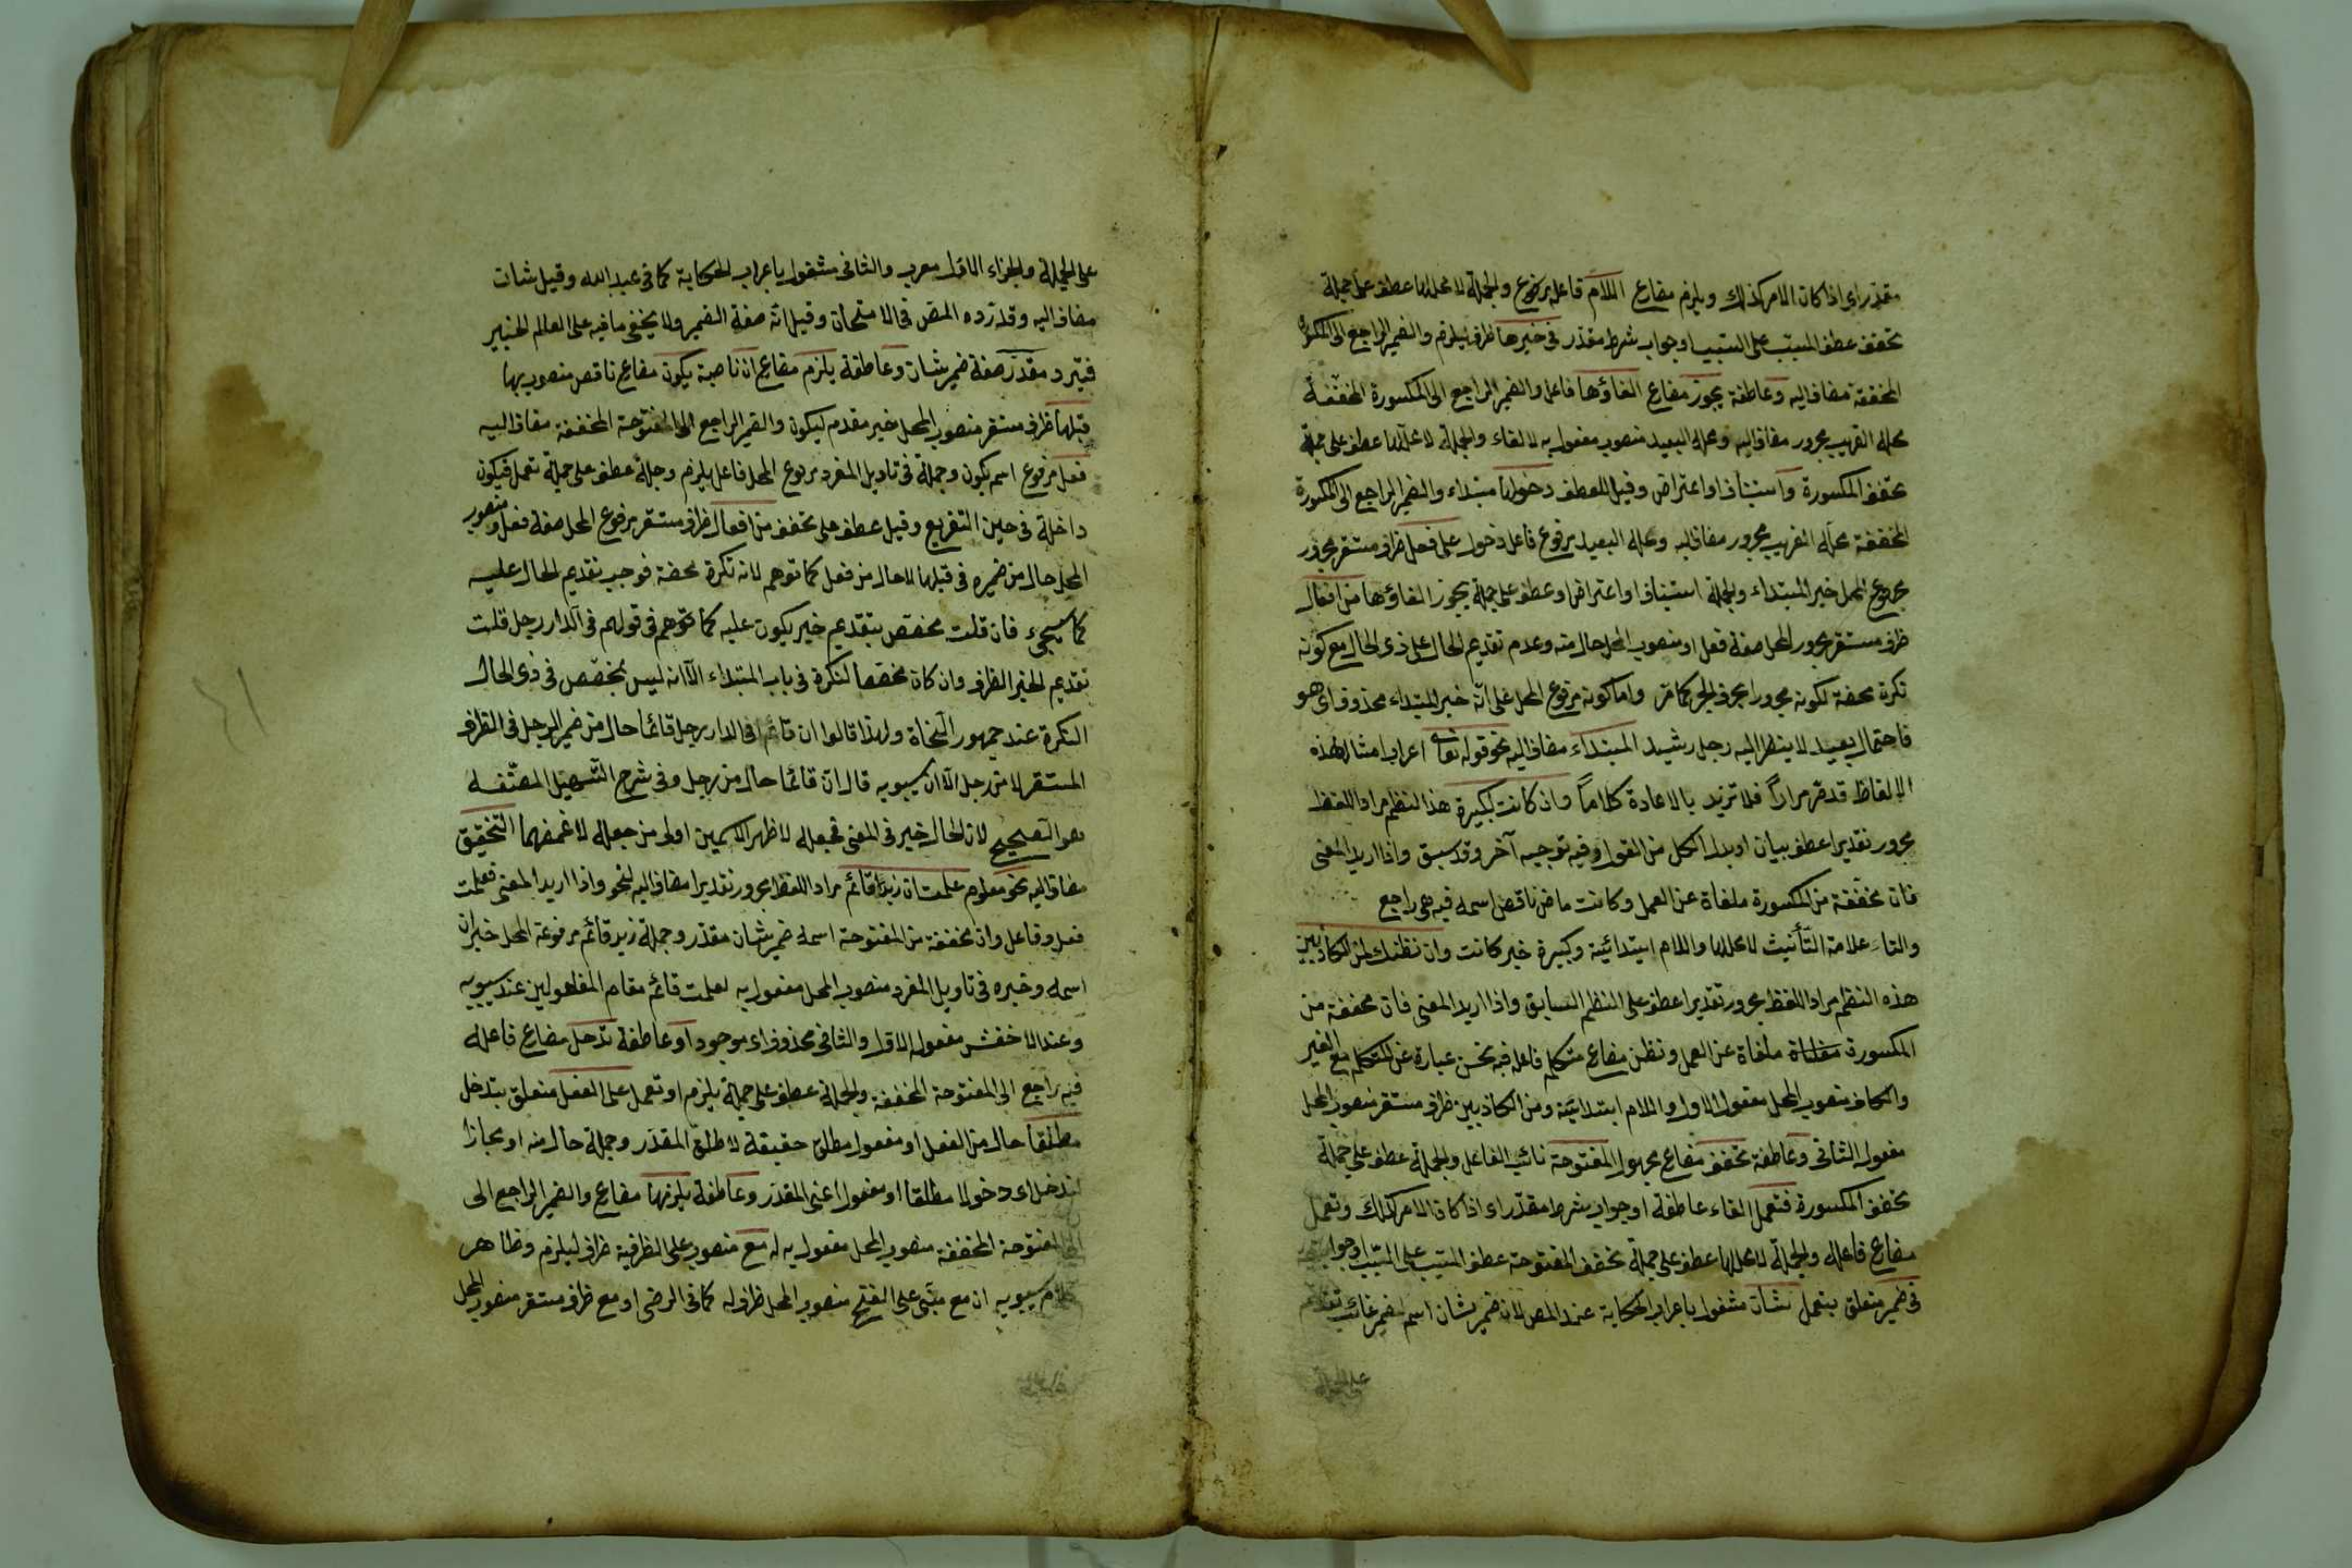 مقدر اى اذا كان الامر كذلك ويلزم مضارع اللام فاعله مرفوع والجملة لا محل لها عطف على جملة
تخفف عطف المسبب على السبب او جواب شرط مقدر فى خبرها ظرف ليلزم والضمير الراجع الى المكسورة
المخففة مضاف اليه وعاطفة يجوز مضارع الغاؤها فاعل والضمير الراجع الى المكسورة المخففة
محله القريب مجرور مضاف اليه ومحله البعيد منصوب مفعول به لالغاء والجملة لا محل لها عطف على جملة
تخفف المكسورة واستيناف او اعتراض وقيل للعطف دخولها مبتداء والضمير الراجع الى المكسورة
المخففة محله القريب مجرور مضاف اليه ومحله البعيد مرفوع فاعل دخول على فعل ظرف مستقر مجرور
مرفوع المحل خبر المبتداء والجملة استيناف او اعتراض او عطف على جملة يجوز الغاؤها من افعال
ظرف مستقر مجرور المحل صفة فعل او منصوب المحل حال منه وعدم تقديم الحال على ذى الحال مع كونه
نكرة محضة لكونه مجرورا بحرف الجر كما مر واما كونه مرفوع المحل على انه خبر المبتداء محذوف اى هو
فاحتمال بعيد لا ينظر اليه رجل رشيد المبتداء مضاف اليه نحو قوله تعالى اعراب امثال هذه
الالفاظ قد مر مرارا فلا تزيد بالاعادة كلاما وان كانت لكبيرة هذا النظم مراد اللفظ
مجرور تقديرا عطف بيان او بدل الكل من القول وفيه توجيه آخر وقد سبق واذا اريد المعنى
فان مخففة من المكسورة ملغاة عن العمل وكانت ماض ناقص اسمه فيه هى راجع
والتاء علامة التأنيث لا محل لها واللام ابتدائية وكبيرة خبر كانت وان نظنك لمن الكاذبين
هذه النظم مراد اللفظ مجرور تقديرا عطف على النظم السابق واذا اريد المعنى فان مخففة من
المكسورة ملغاة عن العمل ونظن مضارع متكلم فاعله فيه نحن عبارة عن المتكلم مع الغير
والكاف منصوب المحل مفعول الاول واللام ابتدائية ومن الكاذبين ظرف مستقر منصوب المحل
مفعول الثانى وعاطفة تخفف مضارع مجهول المفتوحة نائب الفاعل والجملة عطف على جملة
تخفف المكسورة فتعمل الفاء عاطفة او جواب شرط مقدر اى اذا كان الامر كذلك وتعمل
مضارع فاعله والجملة لا محل لها عطف على جملة تخفف المفتوحة عطف المسبب على السبب او جواب
فى ضمير متعلق بتعمل شان مشغول باعراب الحكاية عند المص لان ضمير شان اسم لضمير غائب تقدم
على الجملة
على الجملة والجزاء الاول معرب والثانى مشغول باعراب الحكاية كما فى عبد الله وقيل شان
مضاف اليه وقد رده المص فى الامتحان وقيل انه صفة الضمير ولا يخفى ما فيه على العالم الخبير
مقدر صفة ضمير شان وعاطفة يلزم مضارع ان ناصبة يكون مضارع ناقص منصوب بها
قبلها ظرف مستقر منصوب المحل خبر مقدم ليكون والضمير الراجع الى المفتوحة المخففة مضاف اليه
فعل مرفوع اسم يكون وجملة فى تاويل المفرد مرفوع المحل فاعل يلزم وجملة عطف على جملة تعمل فيكون
داخلة فى حين التفريع وقيل عطف على تخفف من افعال ظرف مستقر مرفوع المحل صفة فعل ومنصوب
المحل حال من ضميره فى قبلها لا حال من فعل كما توهم لانه نكرة محضة فوجب تقديم الحال عليه
كما سيجيء فان قلت مخصص بتقديم خبر يكون عليه كما توهم فى قولهم فى الدار رجل قلت
تقديم الخبر الظرف وان كان مخصصا لنكرة فى باب المبتداء الا انه ليس بمخصص فى ذى الحال
النكرة عند جمهور النحاة ولهذا قالوا ان قائما فى الدار رجل قائما حال من ضمير الرجل فى الظرف
المستقر لا من رجل الا ان سيبويه قال ان قائما حال من رجل وفى شرح التسهيل لمصنفه
هو الصحيح لان الحال خبر فى المعنى فجعله لاظهر الاسمين اولى من جعله لاغمضهما التحقيق
مضاف اليه نحو معلوم علمت ان زيد قائم مراد اللفظ مجرور تقديرا مضاف اليه لنحو واذا اريد المعنى فعلمت
فعل وفاعل وان مخففة من المفتوحة اسمه ضمير شان مقدر وجملة زيد قائم مرفوعة المحل خبر ان
اسمه وخبره فى تاويل المفرد منصوب المحل مفعول به لعلمت قائم مقام المفعولين عند سيبويه
وعند الاخفش مفعوله الاول والثانى محذوف اى موجودا وعاطفة تدخل مضارع فاعله
فيه راجع الى المفتوحة المخففة والجملة عطف على جملة يلزم او تعمل على الفعل متعلق بتدخل
مطلقا حال من الفعل او مفعول مطلق حقيقة لاطلق المقدر وجملة حال منه او مجازا
لتدخل اى دخولا مطلقا او مفعول اعنى المقدر وعاطفة يلزمها مضارع والضمير الراجع الى
المفتوحة المخففة منصوب المحل مفعول به له مع منصوب على الظرفية ظرف ليلزم وظاهر
كلام سيبويه ان مع مبنى على الفتح منصوب المحل ظرف له كما فى الرضى او مع ظرف مستقر منصوب المحل
٤١